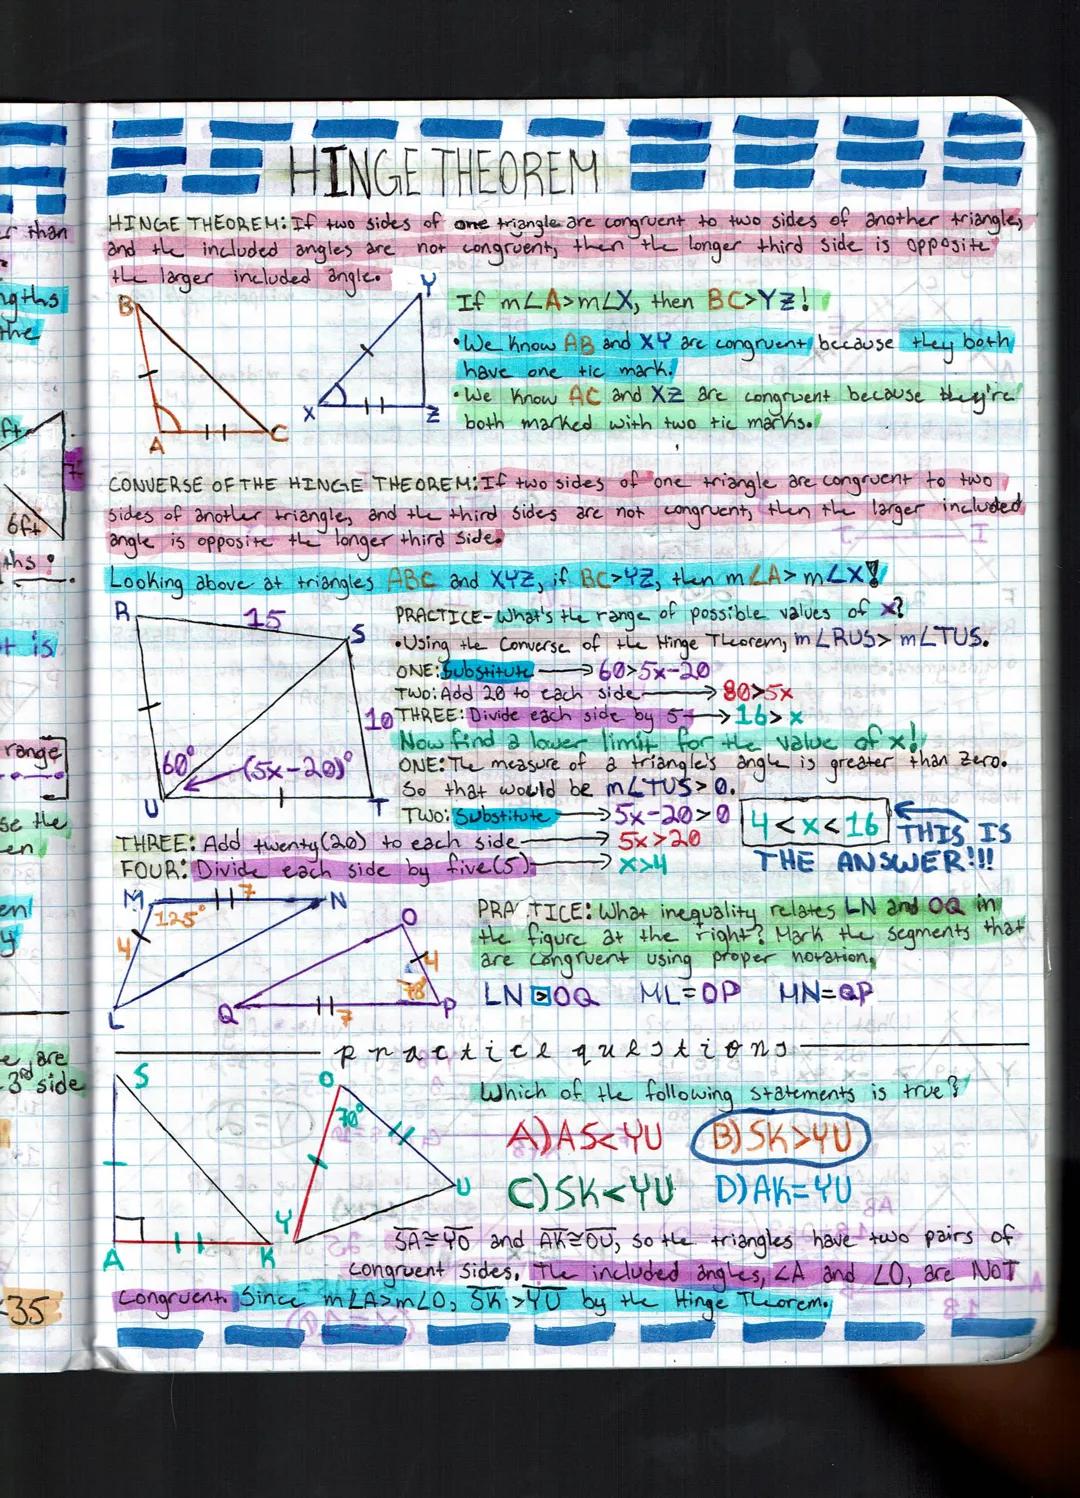 HINGE THEOREM
HINGE THEOREM: If two sides of one triangle are congruent to two sides of another triangle,
and the included angles are not congruent, then the longer third side is opposite
the larger included angle.
B
A
C
Y
X
Z
If m∠A>m∠X, then BC>YZ!
•We know AB and XY are congruent because they both
have one tic mark.
•We know AC and XZ are congruent because they're
both marked with two tic marks.
CONVERSE OF THE HINGE THEOREM: If two sides of one triangle are congruent to two
sides of another triangle, and the third sides are not congruent, then the larger included
angle is opposite the longer third side.
Looking above at triangles ABC and XYZ, if BC>YZ, then m∠A>m∠X!
R
15
S
10
60°
(5x-20)°
U
T
PRACTICE-What's the range of possible values of x?
•Using the Converse of the Hinge Theorem, m∠RUS> m∠TUS.
ONE: Substitute → 60>5x-20
TWO: Add 20 to each side → 80>5x
THREE: Divide each side by 5 → 16>x
Now find a lower limit for the value of x!
ONE: The measure of a triangle's angle is greater than zero.
So that would be m∠TUS>0.
TWO: Substitute → 5x-20>0
THREE: Add twenty (20) to each side → 5x>20
FOUR: Divide each side by five (5) → x>4
4<x<16
THIS IS
THE ANSWER!!!
M
7
N
125°
4
L
O
4
78°
Q
7
P
PRA TICE: What inequality relates LN and OQ in
the figure at the right? Mark the segments that
are congruent using proper notation.
LN > OQ ML=OP MN=QP
practice questions
S
A
K
O
70°
U
Y
Which of the following statements is true?
A) AS<YU B) SK>YU
C) SK<YU D) AK=YU
SA≅YO and AK≅OU, so the triangles have two pairs of
congruent sides. The included angles, ∠A and ∠O, are NOT
congruent. Since m∠A>m∠O, SK>YU by the Hinge Theorem.
than
the
ft
6ft
range
se the
are
3rd side
-35